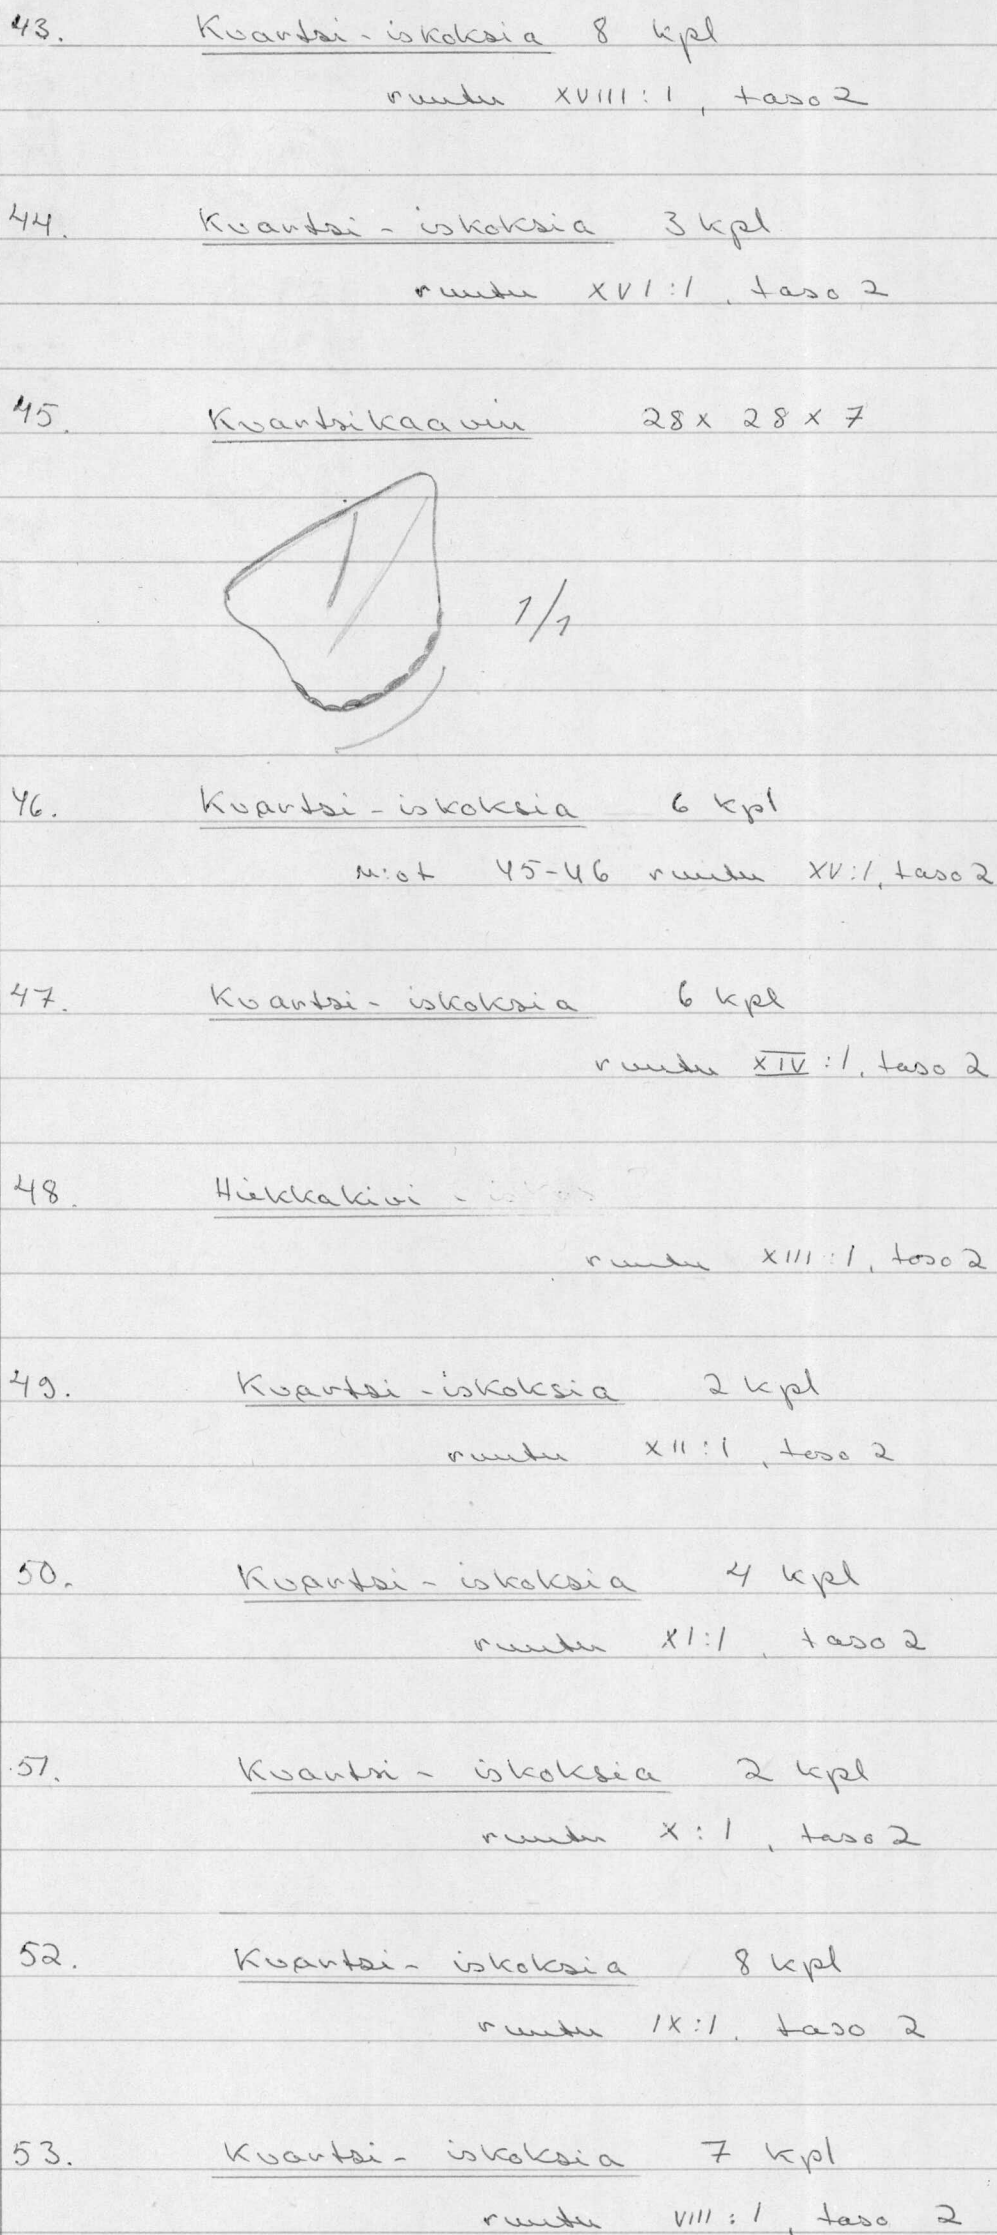 43. Kvartsi-iskoksia 8 kpl
ruutu XVIII:1, taso 2
44. Kvartsi-iskoksia 3 kpl
ruutu XVI:1, taso 2
45. Kvartsikaavin 28 x 28 x 7
1/1
46. Kvartsi-iskoksia 6 kpl
n:ot 45-46 ruutu XV:1, taso 2
47. Kvartsi-iskoksia 6 kpl
ruutu XIV:1, taso 2
48. Hiekkakivi - iskos
ruutu XIII:1, taso 2
49. Kvartsi-iskoksia 2 kpl
ruutu XII:1, taso 2
50. Kvartsi-iskoksia 4 kpl
ruutu XI:1, taso 2
51. Kvartsi-iskoksia 2 kpl
ruutu X:1, taso 2
52. Kvartsi-iskoksia 8 kpl
ruutu IX:1, taso 2
53. Kvartsi-iskoksia 7 kpl
ruutu VIII:1, taso 2